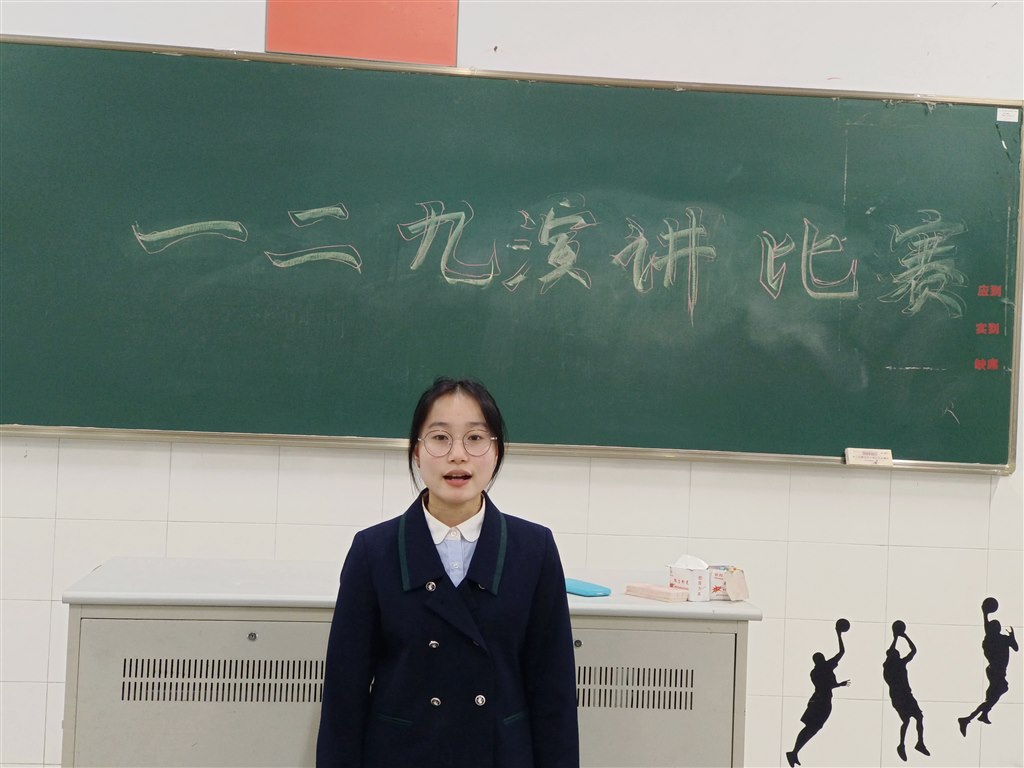 一二九演讲比赛
应到
实到
缺席